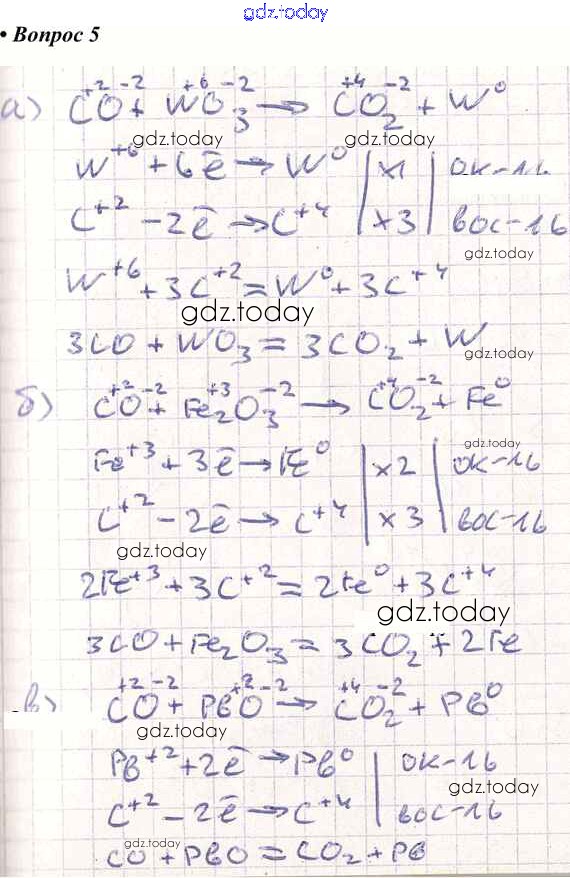 gdz.today
• Вопрос 5
+2 -2 +6 -2 +4 -2
а) CO + WO₃ → CO₂ + W⁰
gdz.today gdz.today
W⁺⁶ + 6ē → W⁰ | x1 | ок-ль
C⁺² - 2ē → C⁺⁴ | x3 | вос-ль
gdz.today
W⁺⁶ + 3C⁺² = W⁰ + 3C⁺⁴
gdz.today
3CO + WO₃ = 3CO₂ + W
gdz.today
+2 -2 +3 -2 +4 -2
б) CO + Fe₂O₃ → CO₂ + Fe⁰
gdz.today
Fe⁺³ + 3ē → Fe⁰ | x2 | ок-ль
C⁺² - 2ē → C⁺⁴ | x3 | вос-ль
gdz.today
2Fe⁺³ + 3C⁺² = 2Fe⁰ + 3C⁺⁴
gdz.today
3CO + Fe₂O₃ = 3CO₂ + 2Fe
+2 -2 +2 -2 +4 -2
в) CO + PbO → CO₂ + Pb⁰
gdz.today
Pb⁺² + 2ē → Pb⁰ | ок-ль
gdz.today
C⁺² - 2ē → C⁺⁴ | вос-ль
gdz.today
CO + PbO = CO₂ + Pb